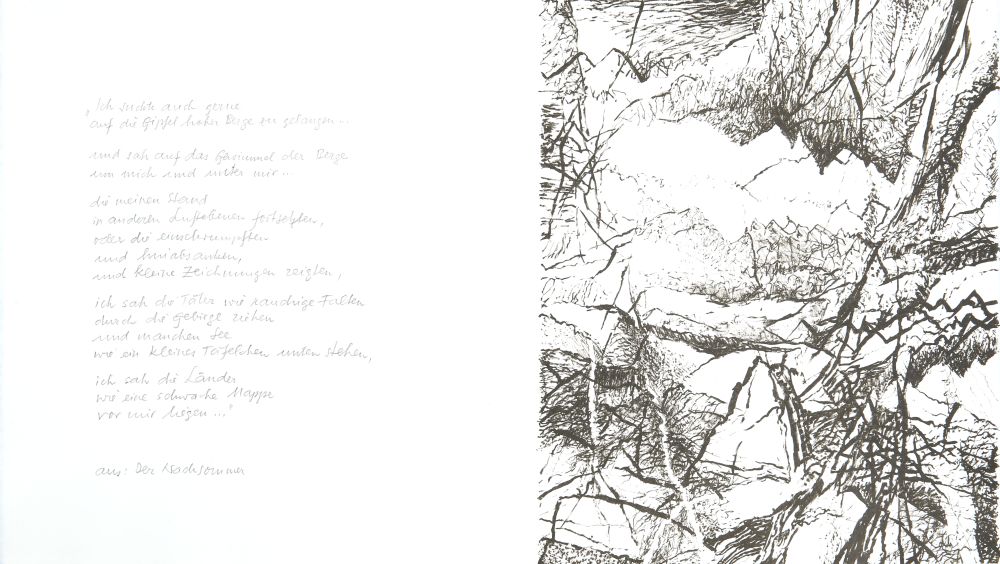 „Ich suchte auch gerne
auf die Gipfel hoher Berge zu gelangen...
und sah auf das Gewimmel der Berge
um mich und unter mir...
die meinen Stand
in anderen Luftebenen fortsetzten,
oder die einschrumpften
und hinabsanken,
und kleine Zeichnungen zeigten,
ich sah die Täler wie rauchige Falten
durch die Gebirge ziehen
und manchen See
wie ein kleines Täfelchen unten stehen,
ich sah die Länder
wie eine schwache Mappe
vor mir liegen..."
aus: Der Nachsommer